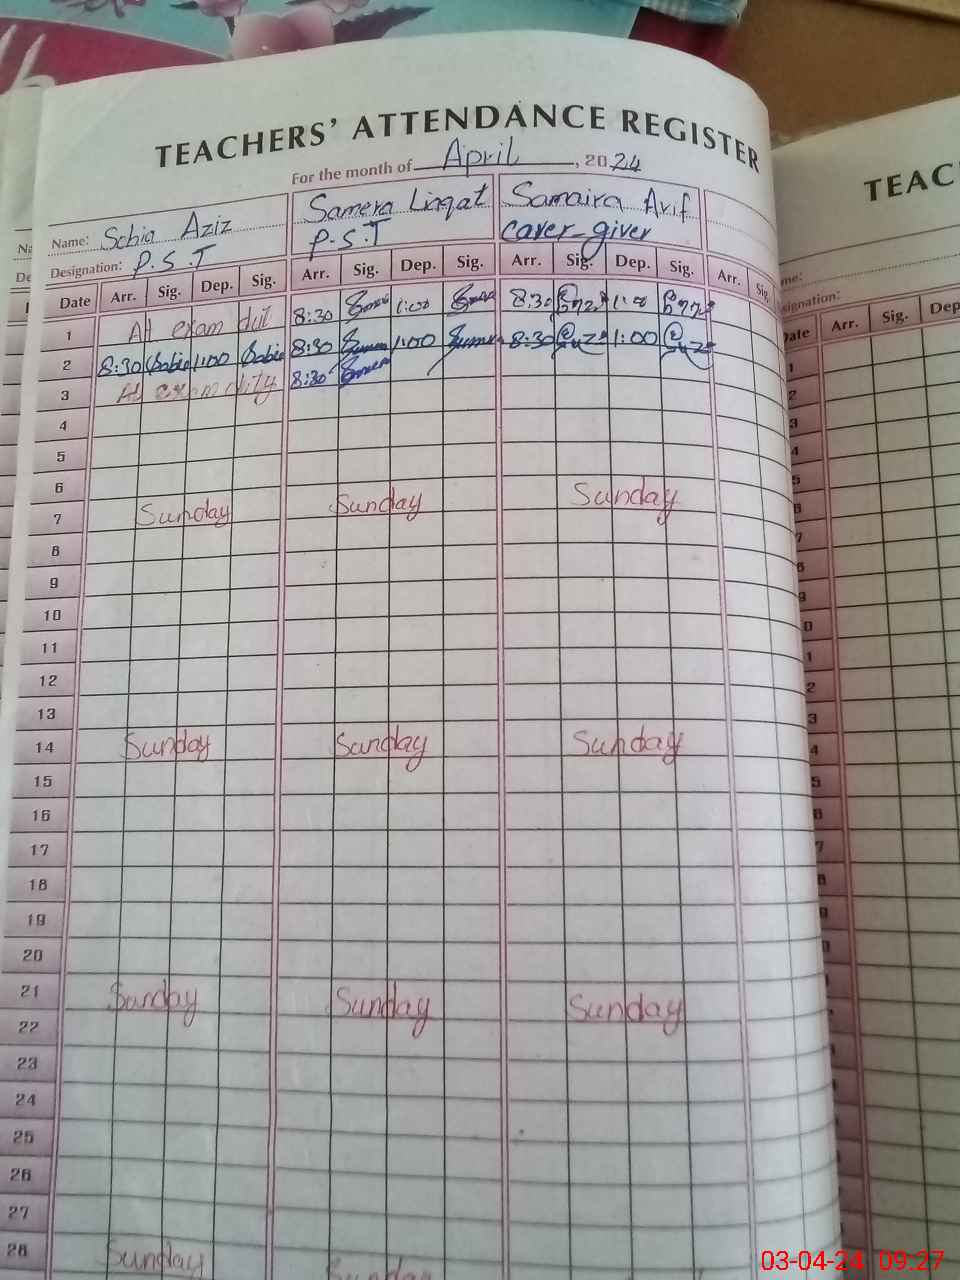 TEACHERS' ATTENDANCE REGISTER
For the month of April, 2024
Name: Sobia Aziz Samera Liaqat Samaira Arif
Designation: P.S.T P.S.T caver_giver
Date Arr. Sig. Dep. Sig. Arr. Sig. Dep. Sig. Arr. Sig. Dep. Sig. Arr. Sig.
1 At exam dut 8:30 1:00 8:30 1:00
2 8:30 Sobia 1:00 Sobia 8:30 1:00 8:30 1:00
3 At exam duty 8:30
4
5
6
7 Sunday Sunday Sunday
8
9
10
11
12
13
14 Sunday Sunday Sunday
15
16
17
18
19
20
21 Sunday Sunday Sunday
22
23
24
25
26
27
28 Sunday Sunday
TEAC
Date Arr. Sig. Dep
03-04-24 09:27